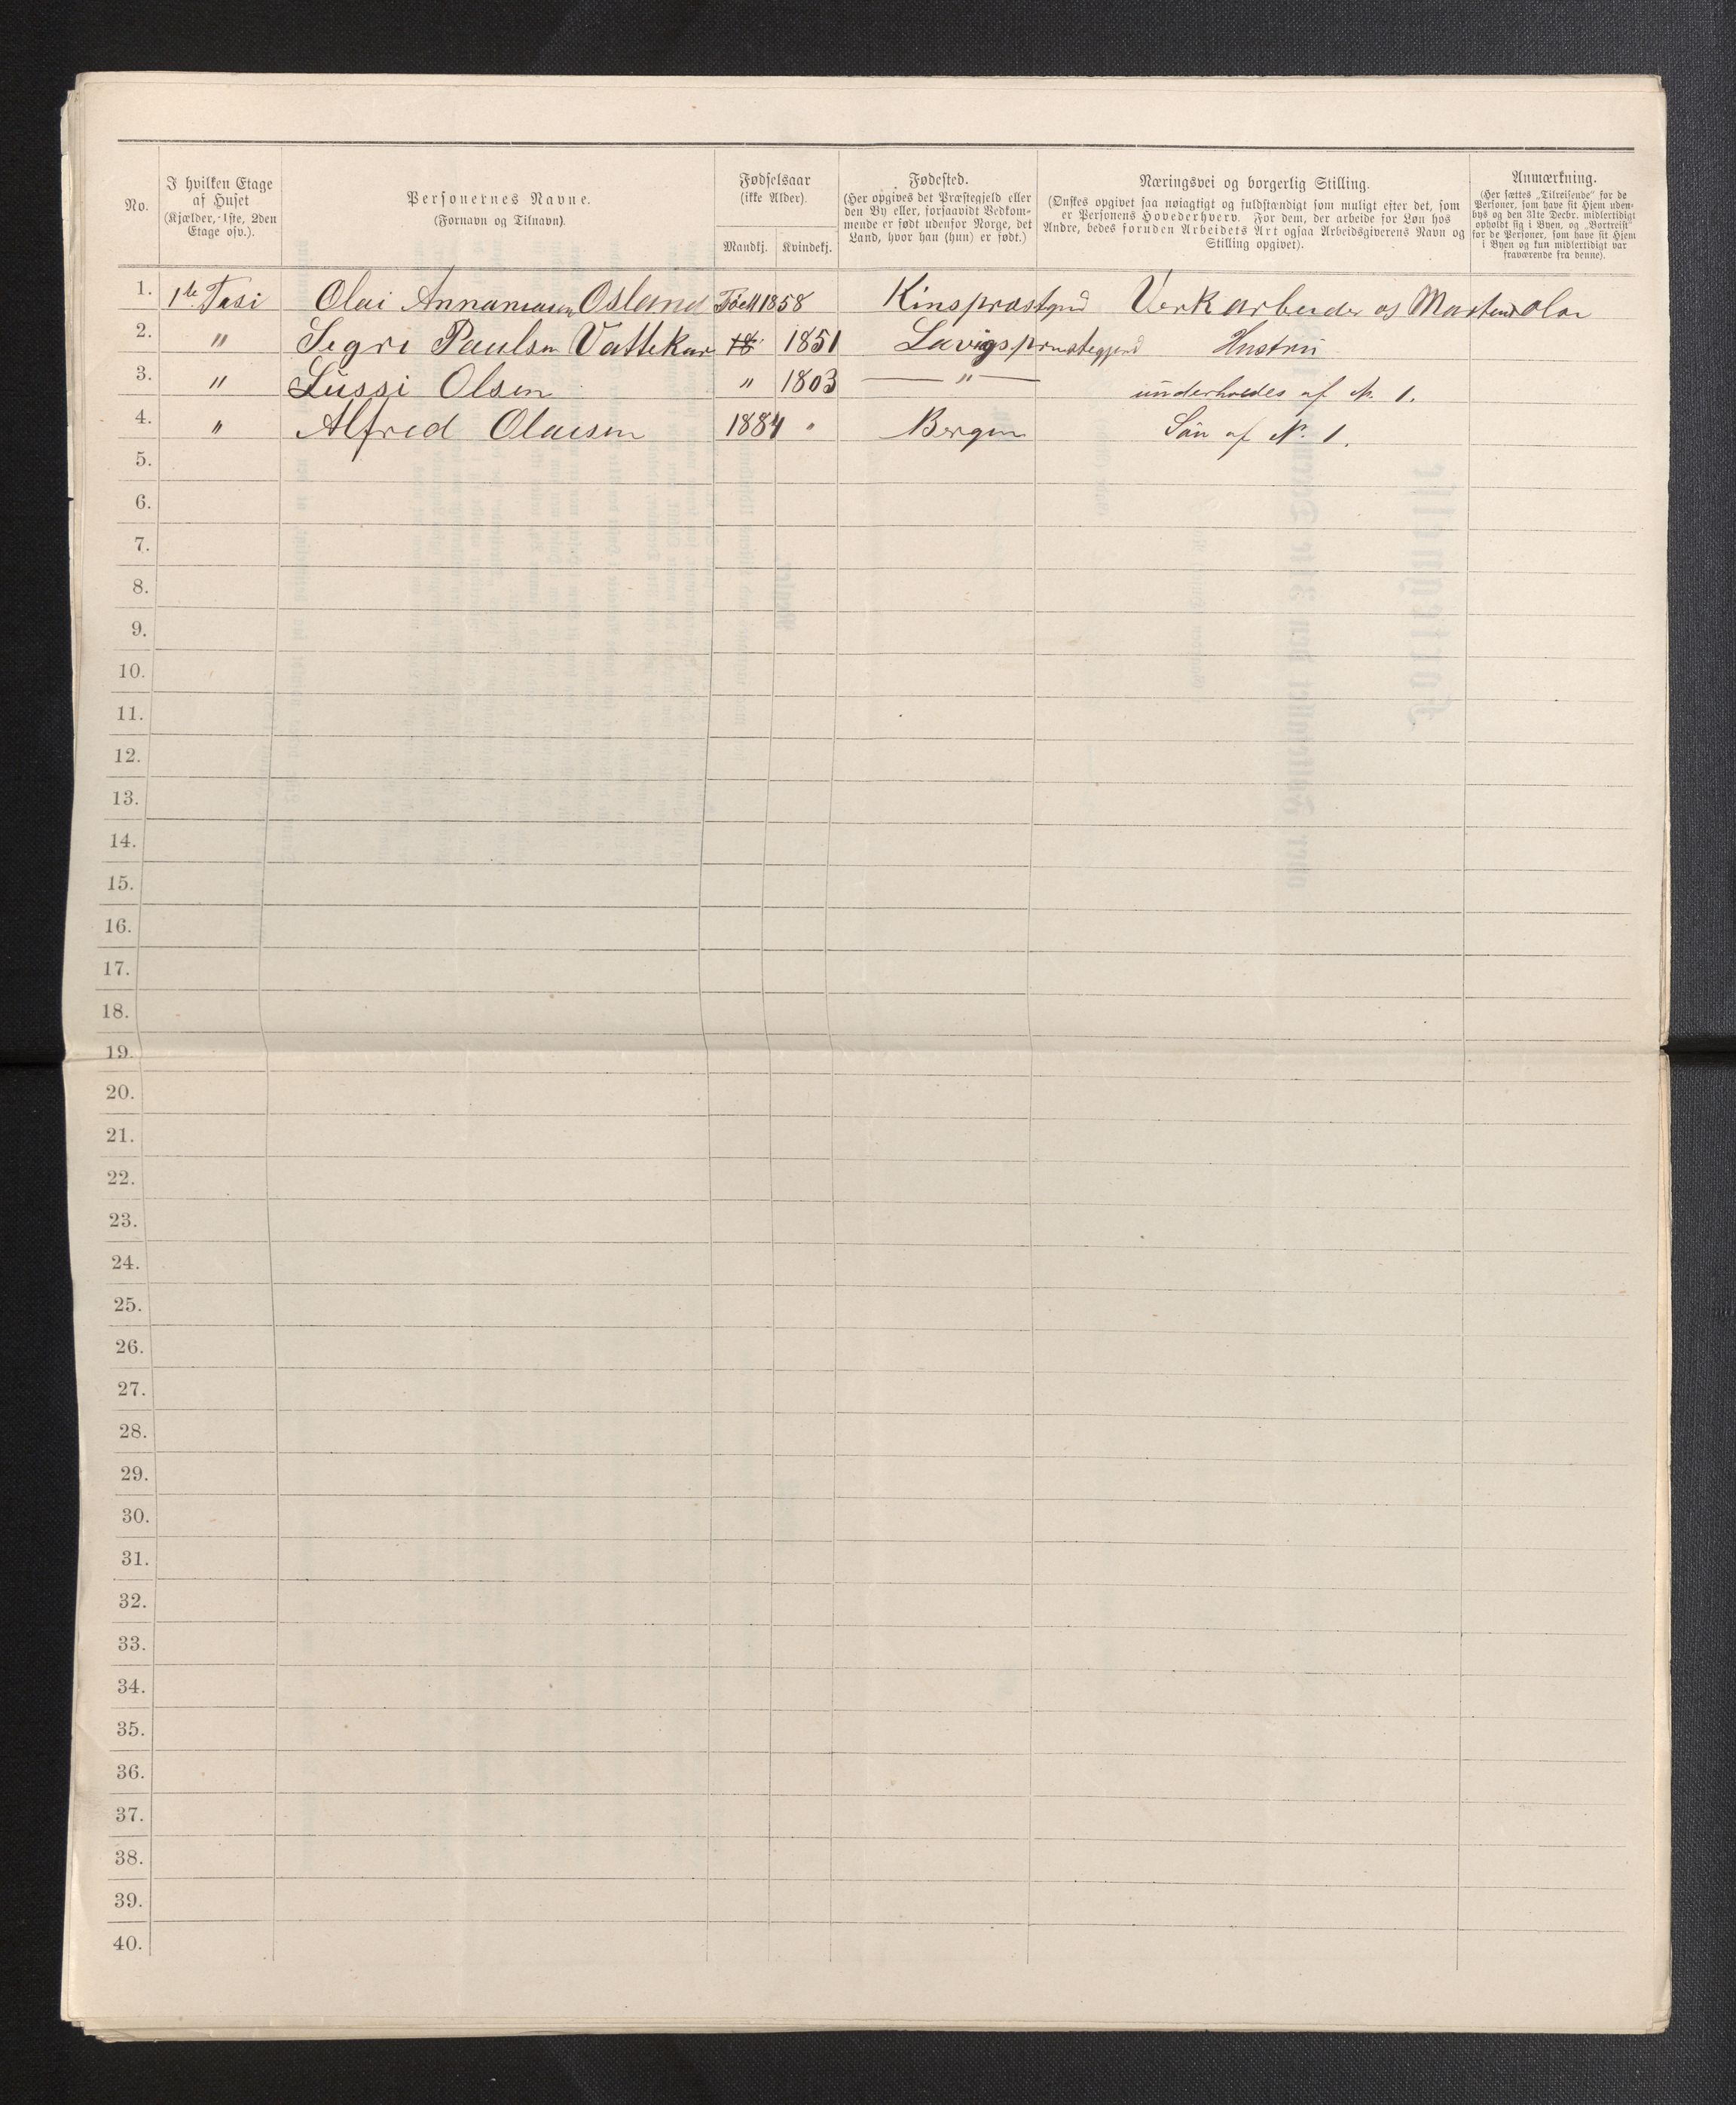 No.
I hvilken Etage
af Huset
(Kjælder, 1ste, 2den
Etage osv.).
Personernes Navne.
(Fornavn og Tilnavn).
Fødselsaar
(ikke Alder).
Mandkj. Kvindekj.
Fødested.
(Her opgives det Præstegjeld eller
den By eller, forsaavidt Vedkom-
mende er født udenfor Norge, det
Land, hvor han (hun) er født.)
Næringsvei og borgerlig Stilling.
(Ønskes opgivet saa nøiagtigt og fuldstændigt som muligt efter det, som
er Personens Hovederhverv. For dem, der arbeide for Løn hos
Andre, bedes foruden Arbeidets Art ogsaa Arbeidsgiverens Navn og
Stilling opgivet).
Anmærkning.
(Her sættes „Tilreisende" for de
Personer, som have sit Hjem uden-
bys og den 31te Decbr. midlertidigt
opholdt sig i Byen, og „Bortreist"
for de Personer, som have sit Hjem
i Byen og kun midlertidigt var
fraværende fra denne).
1. 1te Tasi Olai Osland 1858 Kinsprastgjed Verkarbeider og
2. " Segri Paulsn Vattekar 18 1851 Lavigsprastegjend Hustru
3. " Lussi Olsen " 1803 — " — underholdes af N. 1.
4. " Alfred Olaisen 1884 " Bergen Sön af N. 1.
5.
6.
7.
8.
9.
10.
11.
12.
13.
14.
15.
16.
17.
18.
19.
20.
21.
22.
23.
24.
25.
26.
27.
28.
29.
30.
31.
32.
33.
34.
35.
36.
37.
38.
39.
40.